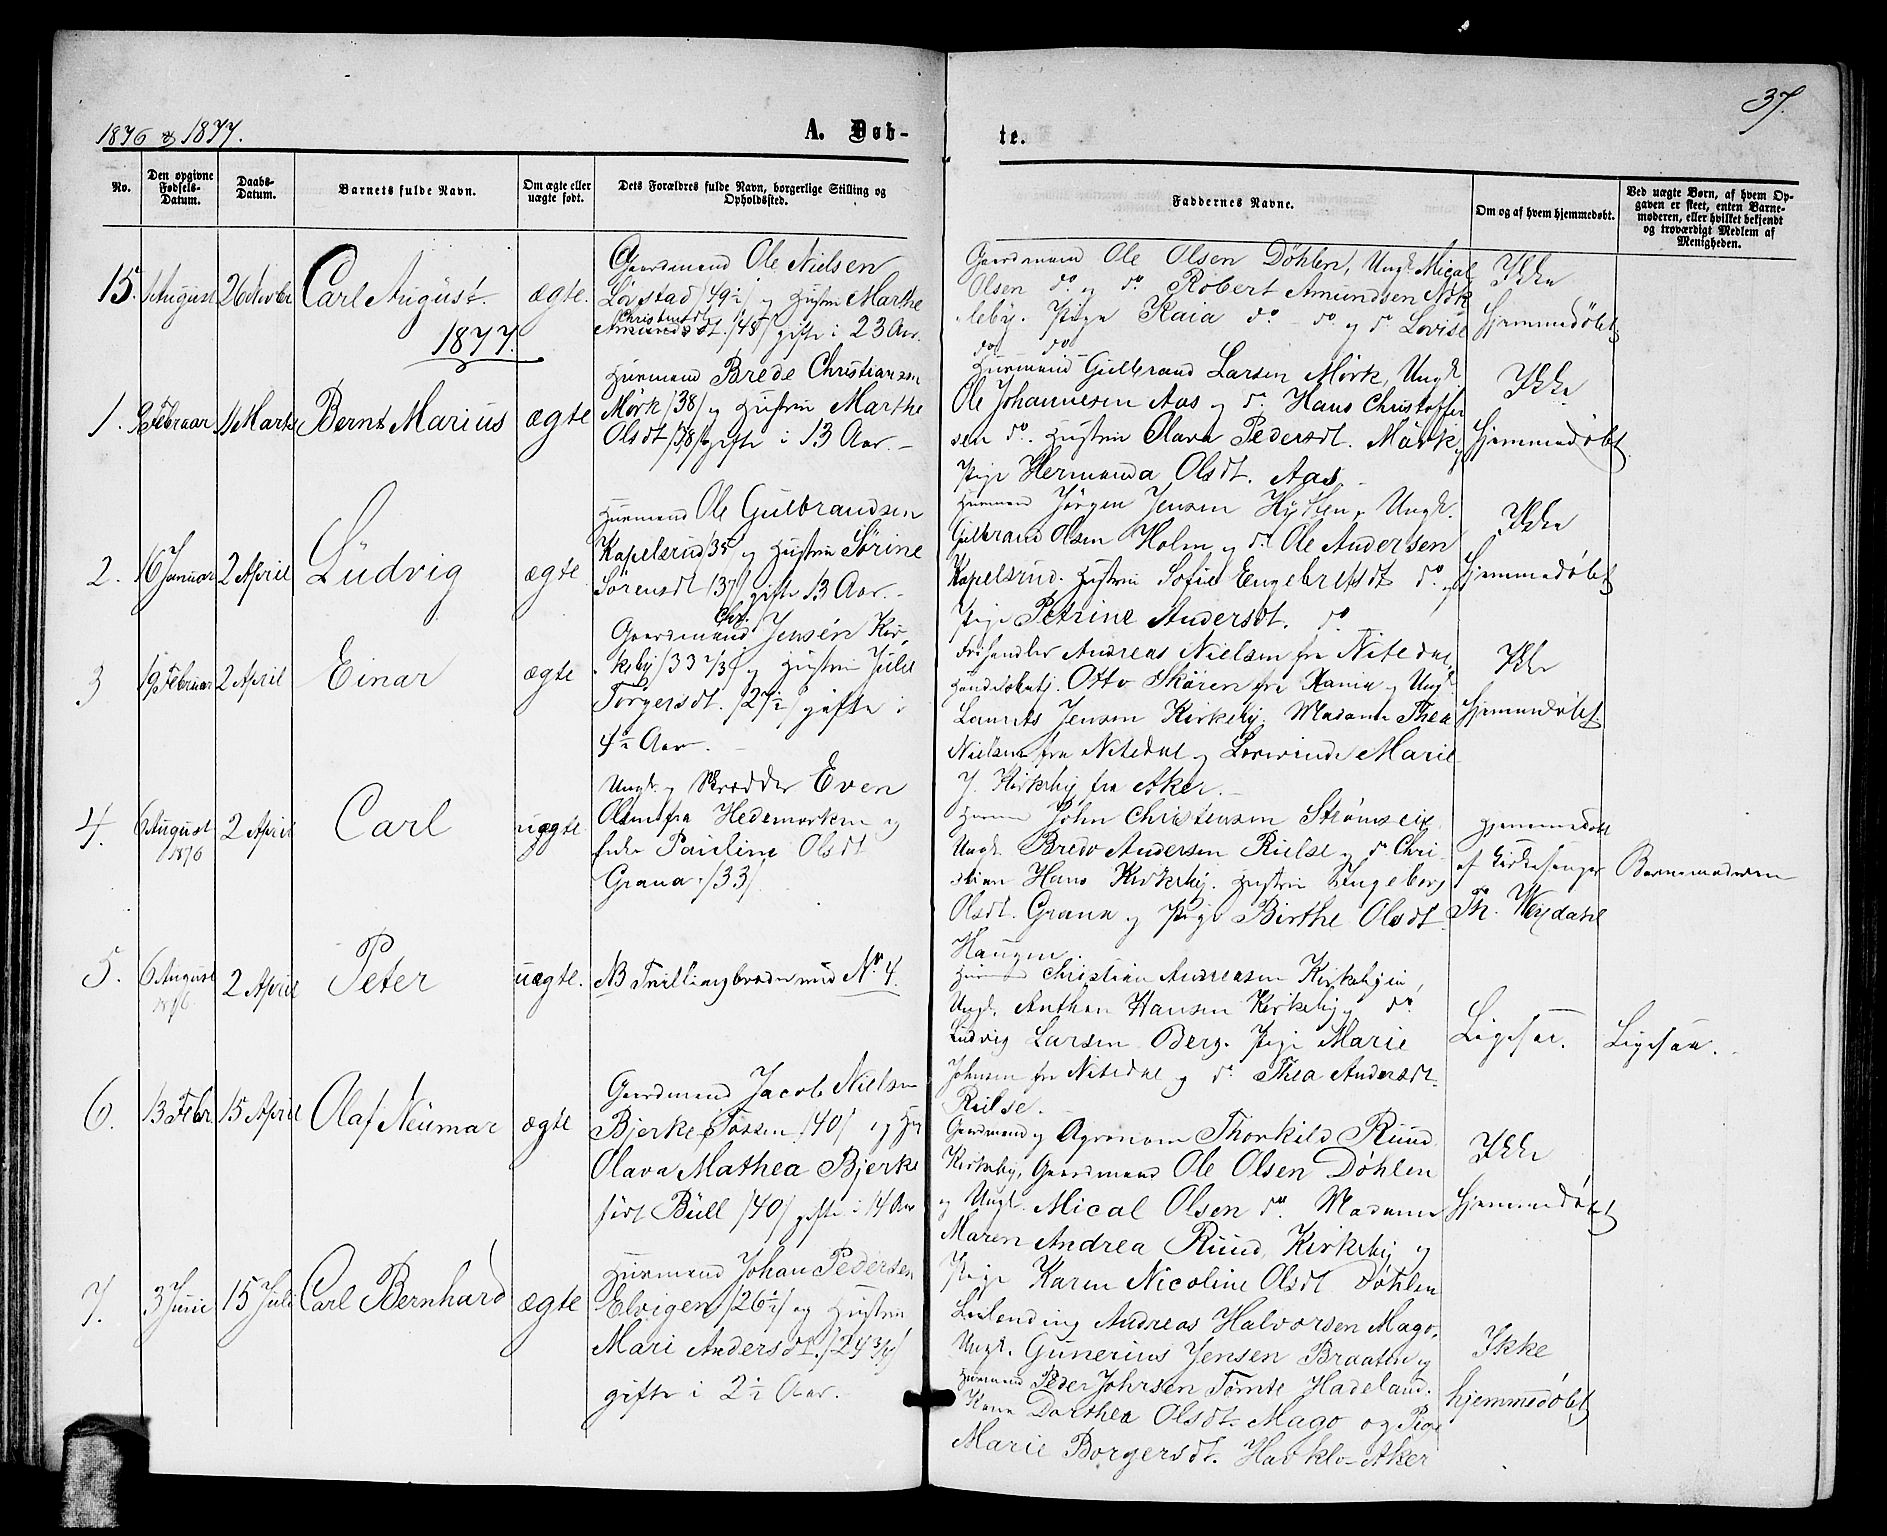 37.
1876 & 1877.
A. Døb-
te.
No.
Den opgivne Fødsels-Datum.
Daabs-Datum.
Barnets fulde Navn.
Om ægte eller uægte født.
Dets Forældres fulde Navn, borgerlige Stilling og Opholdssted.
Faddernes Navne.
Om og af hvem hjemmedøbt.
Ved uægte Børn, af hvem Opgaven er skeet, enten Barnemoderen, eller hvilket bekjendt og troværdigt Medlem af Menigheden.
15. August 26 Novbr Carl August. ægte.
Gaardmand Ole Nielsen
Løvstad /49½/ og Hustru Marthe
Christensdt
/48/ gifte i 23 Aar.
Gaardmand Ole Olsen Døhlen, Ungk. Mical
Olsen do. og do. Robert Amundsen
Pige Kaia do. do. og do. Lovise
do do
Ikke
hjemmedøbt
1877.
1. Februar Marts Bernt Marius ægte
Huusmand Brede Christiansen
Mørk /38/ og Hustru Marthe
Olsdt /38/ gifte i 13 Aar. –
Huusmand Gulbrand Larsen Mørk, Ungk.
Ole Johannesen Aas og do. Hans Christoffer
sen do. Hustru Olava Pedersdt. Mørk og
Pige Hermanda Olsdt. Aas.
Ikke
hjemmedøbt
2. 16 Januar 2 April Ludvig ægte
Huusmand Ole Gulbrandsen
Kapelsrud 35 og Hustru Sørine
Sørensdt /37/ gifte 13 Aar. –
Huusmand Jørgen Jensen Ungk.
Gulbrand Olsen Holm og do. Ole Andersen
Kapelsrud. Hustru Sofie Engebretsdt do. og
Pige Petrine Andersdt. do.
Ikke
hjemmedøbt
3 19 Februar 2 April Einar ægte
Chr.
Gaardmand Jensen Kir-
keby /33 og Hustru Julie
Torgersdt. /27½/ gifte i
4½ Aar. –
Andreas Nielsen fra Nitedal,
Otto Skøren fra og Ungk
Laurits Jensen Kirkeby. Madame Thea
Nielsen fra Nitedal og Marie
J. Kirkeby fra Aker. –
Ikke
hjemmedøbt
4. 6 August 1876 2 April Carl uægte
Ungk. og Skrædder Even
Olsen fra Hedemarken og
Pauline Olsdt
Grana /33/
John Christensen
Ungk. Bredo Andersen Rielse og do. Chri-
stian Hans Kirkeby. Hustru Ingeborg
Olsdt. Grana og Pige Birthe Olsdt.
Haugen.
hjemmedøbt
af Kirkesanger
Th. Weydahl
Barnemoderen
5. 6 August 1876 2 April Peter uægte.
NB Tvillingbroder med No. 4.
Christian Andreasen Kirkebyeie,
Ungk. Anthon Hansen Kirkeby og do.
Ludvig Larsen Berg. Pige Marie
Johnsen fra Nitedal og do. Thea Andersdt.
Rielse. –
Ligesaa.
Ligesaa.
6. 13 Febr. 15 April Olaf Neumar ægte
Gaardmand Jacob Nielsen
Bjerke Fossen /40/ og Hu
Olava Mathea Bjerke
født Bull /40/ gifte i 14 Aar
Gaardmand og Agronom Thorkild Ruud
Kirkeby, Gaardmand Ole Olsen Døhlen
og Ungk. Mical Olsen do. Madame
Maren Andrea Ruud, Kirkeby og
Pige Karen Nicoline Olsdt Døhlen
Ikke
hjemmedøbt
7. 3 Juni 15 Juli Carl Bernhard ægte
Huusmand Johan Pedersen
Elvigen /26½/ og Hustru
Mari Andersdt. /24¾/
gifte i 2½ Aar.
Leilending Andreas Halvorsen Mago,
Ungk. Gunerius Jensen Braaten og
Huusmand Peder Johrsen Tømte Hadeland.
Kone Dorthea Olsdt. Mago og Pige
Marie Borgersdt. Havklo – Aker
Ikke
hjemmedøbt